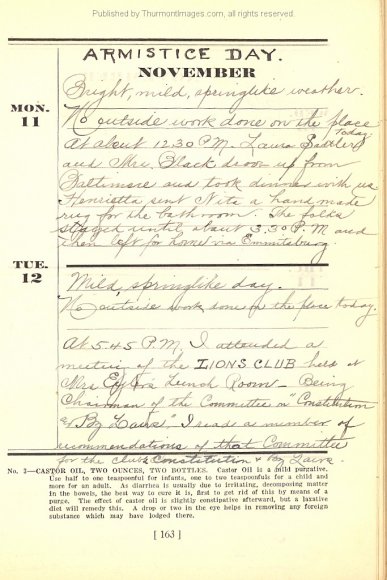 Published by ThurmontImages.com, all rights reserved.
ARMISTICE DAY.
NOVEMBER
MON.
11
Bright, mild, springlike weather.
No outside work done on the place
today.
At about 12:30 P.M. Laura
and Mrs. Black drove up from
Baltimore and took dinner with us.
Henrietta sent Nita a hand made
rug for the bathroom. The folks
stayed until about 3.30 P.M. and
then left for home via Emmitsburg.
TUE.
12
Mild, springlike day.
No outside work done on the place today.
At 5.45 P.M. I attended a
meeting of the LIONS CLUB held at
Mrs Lunch Room – Being
Chairman of the Committee on "Constitution
& By Laws" I read a number of
recommendations of that Committee
for the club Constitution & By Laws.
No. 3—CASTOR OIL, TWO OUNCES, TWO BOTTLES. Castor Oil is a mild purgative.
Use half to one teaspoonful for infants, one to two teaspoonfuls for a child and
more for an adult. As diarrhea is usually due to irritating, decomposing matter
in the bowels, the best way to cure it is, first to get rid of this by means of a
purge. The effect of castor oil is slightly constipative afterward, but a laxative
diet will remedy this. A drop or two in the eye helps in removing any foreign
substance which may have lodged there.
[ 163 ]